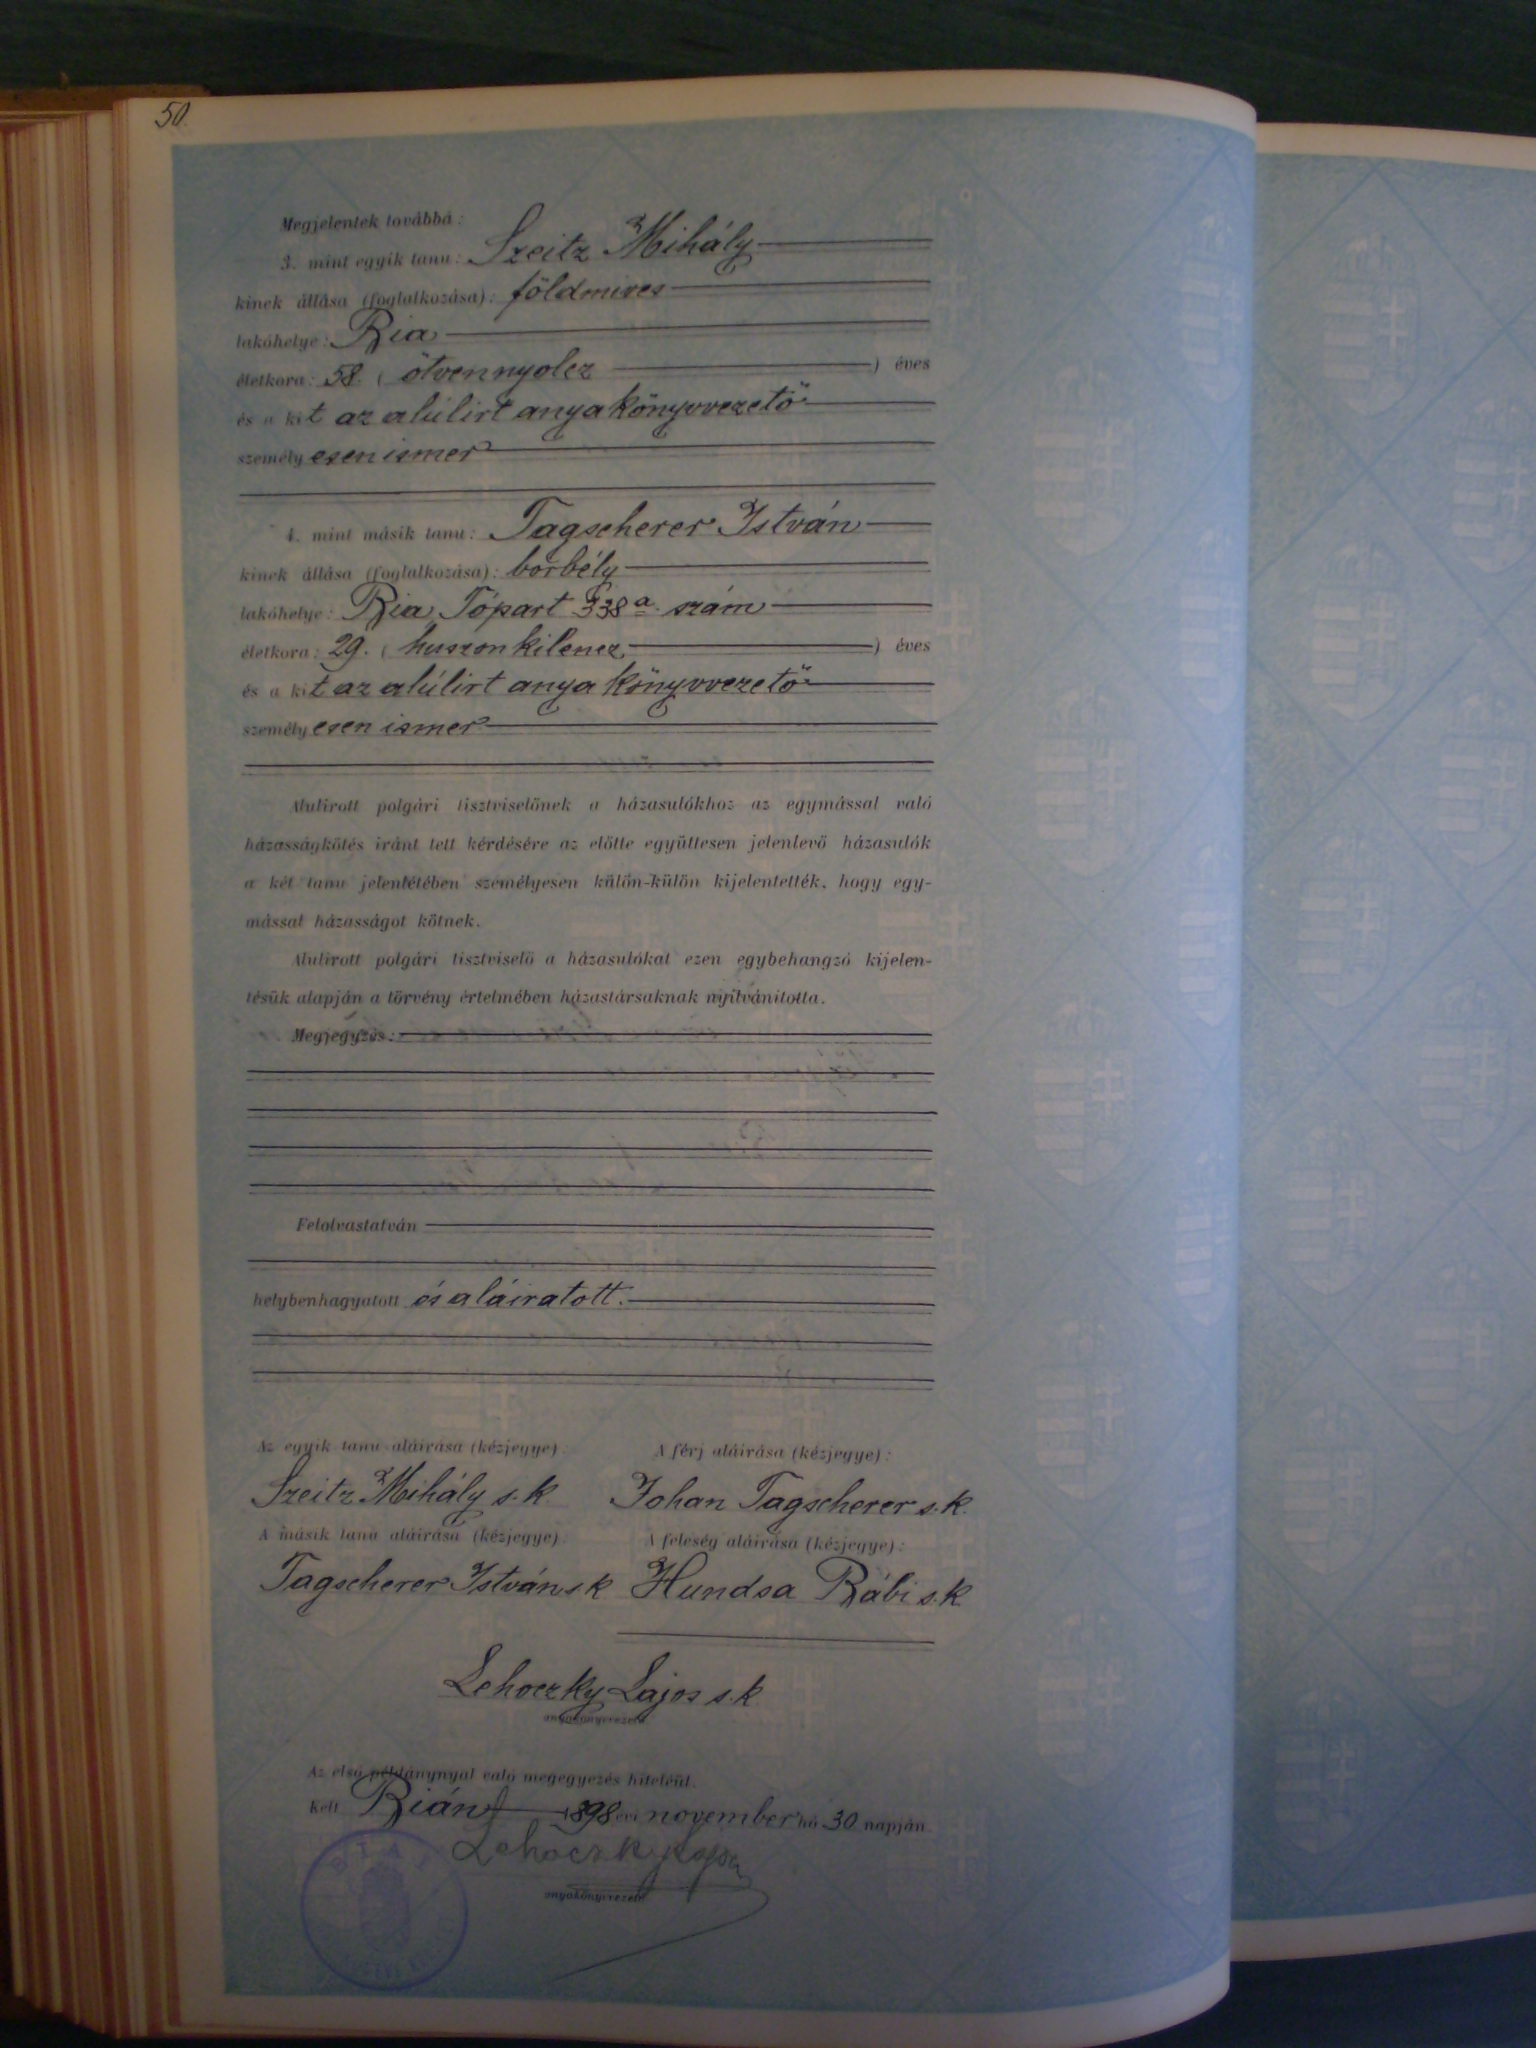 50
Megjelentek továbbá:
3. mint egyik tanu: Szeitz Mihály
kinek állása (foglalkozása): földmives
lakóhelye: Bia
életkora: 58. (ötvennyolcz) éves
és a kit az alúlirt anyakönyvvezető
személyesen ismer
4. mint másik tanu: Tagscherer István
kinek állása (foglalkozása): borbély
lakóhelye: Bia, Tópart 338 a. szám
életkora: 29. (huszonkilencz) éves
és a kit az alúlirt anyakönyvvezető
személyesen ismer
Alulirott polgári tisztviselőnek a házasulókhoz az egymással való
házasságkötés iránt tett kérdésére az előtte együttesen jelenlevő házasulók
a két tanu jelenlétében személyesen külön-külön kijelentették, hogy egy-
mással házasságot kötnek.
Alulirott polgári tisztviselő a házasulókat ezen egybehangzó kijelen-
tésük alapján a törvény értelmében házastársaknak nyilvánitotta.
Megjegyzés:
Felolvastatván
helybenhagyatott és aláiratott.
Az egyik tanu aláirása (kézjegye): A férj aláirása (kézjegye):
Szeitz Mihály s. k. Johan Tagscherer s. k.
A másik tanu aláirása (kézjegye): A feleség aláirása (kézjegye):
Tagscherer István s k Hundsa Bábi s. k.
Lehoczky Lajos s. k.
anyakönyvvezető
Az első példánynyal való megegyezés hiteléül.
Kelt Bián 1898 évi november hó 30 napján
Lehoczky Lajos
anyakönyvvezető
BIAI